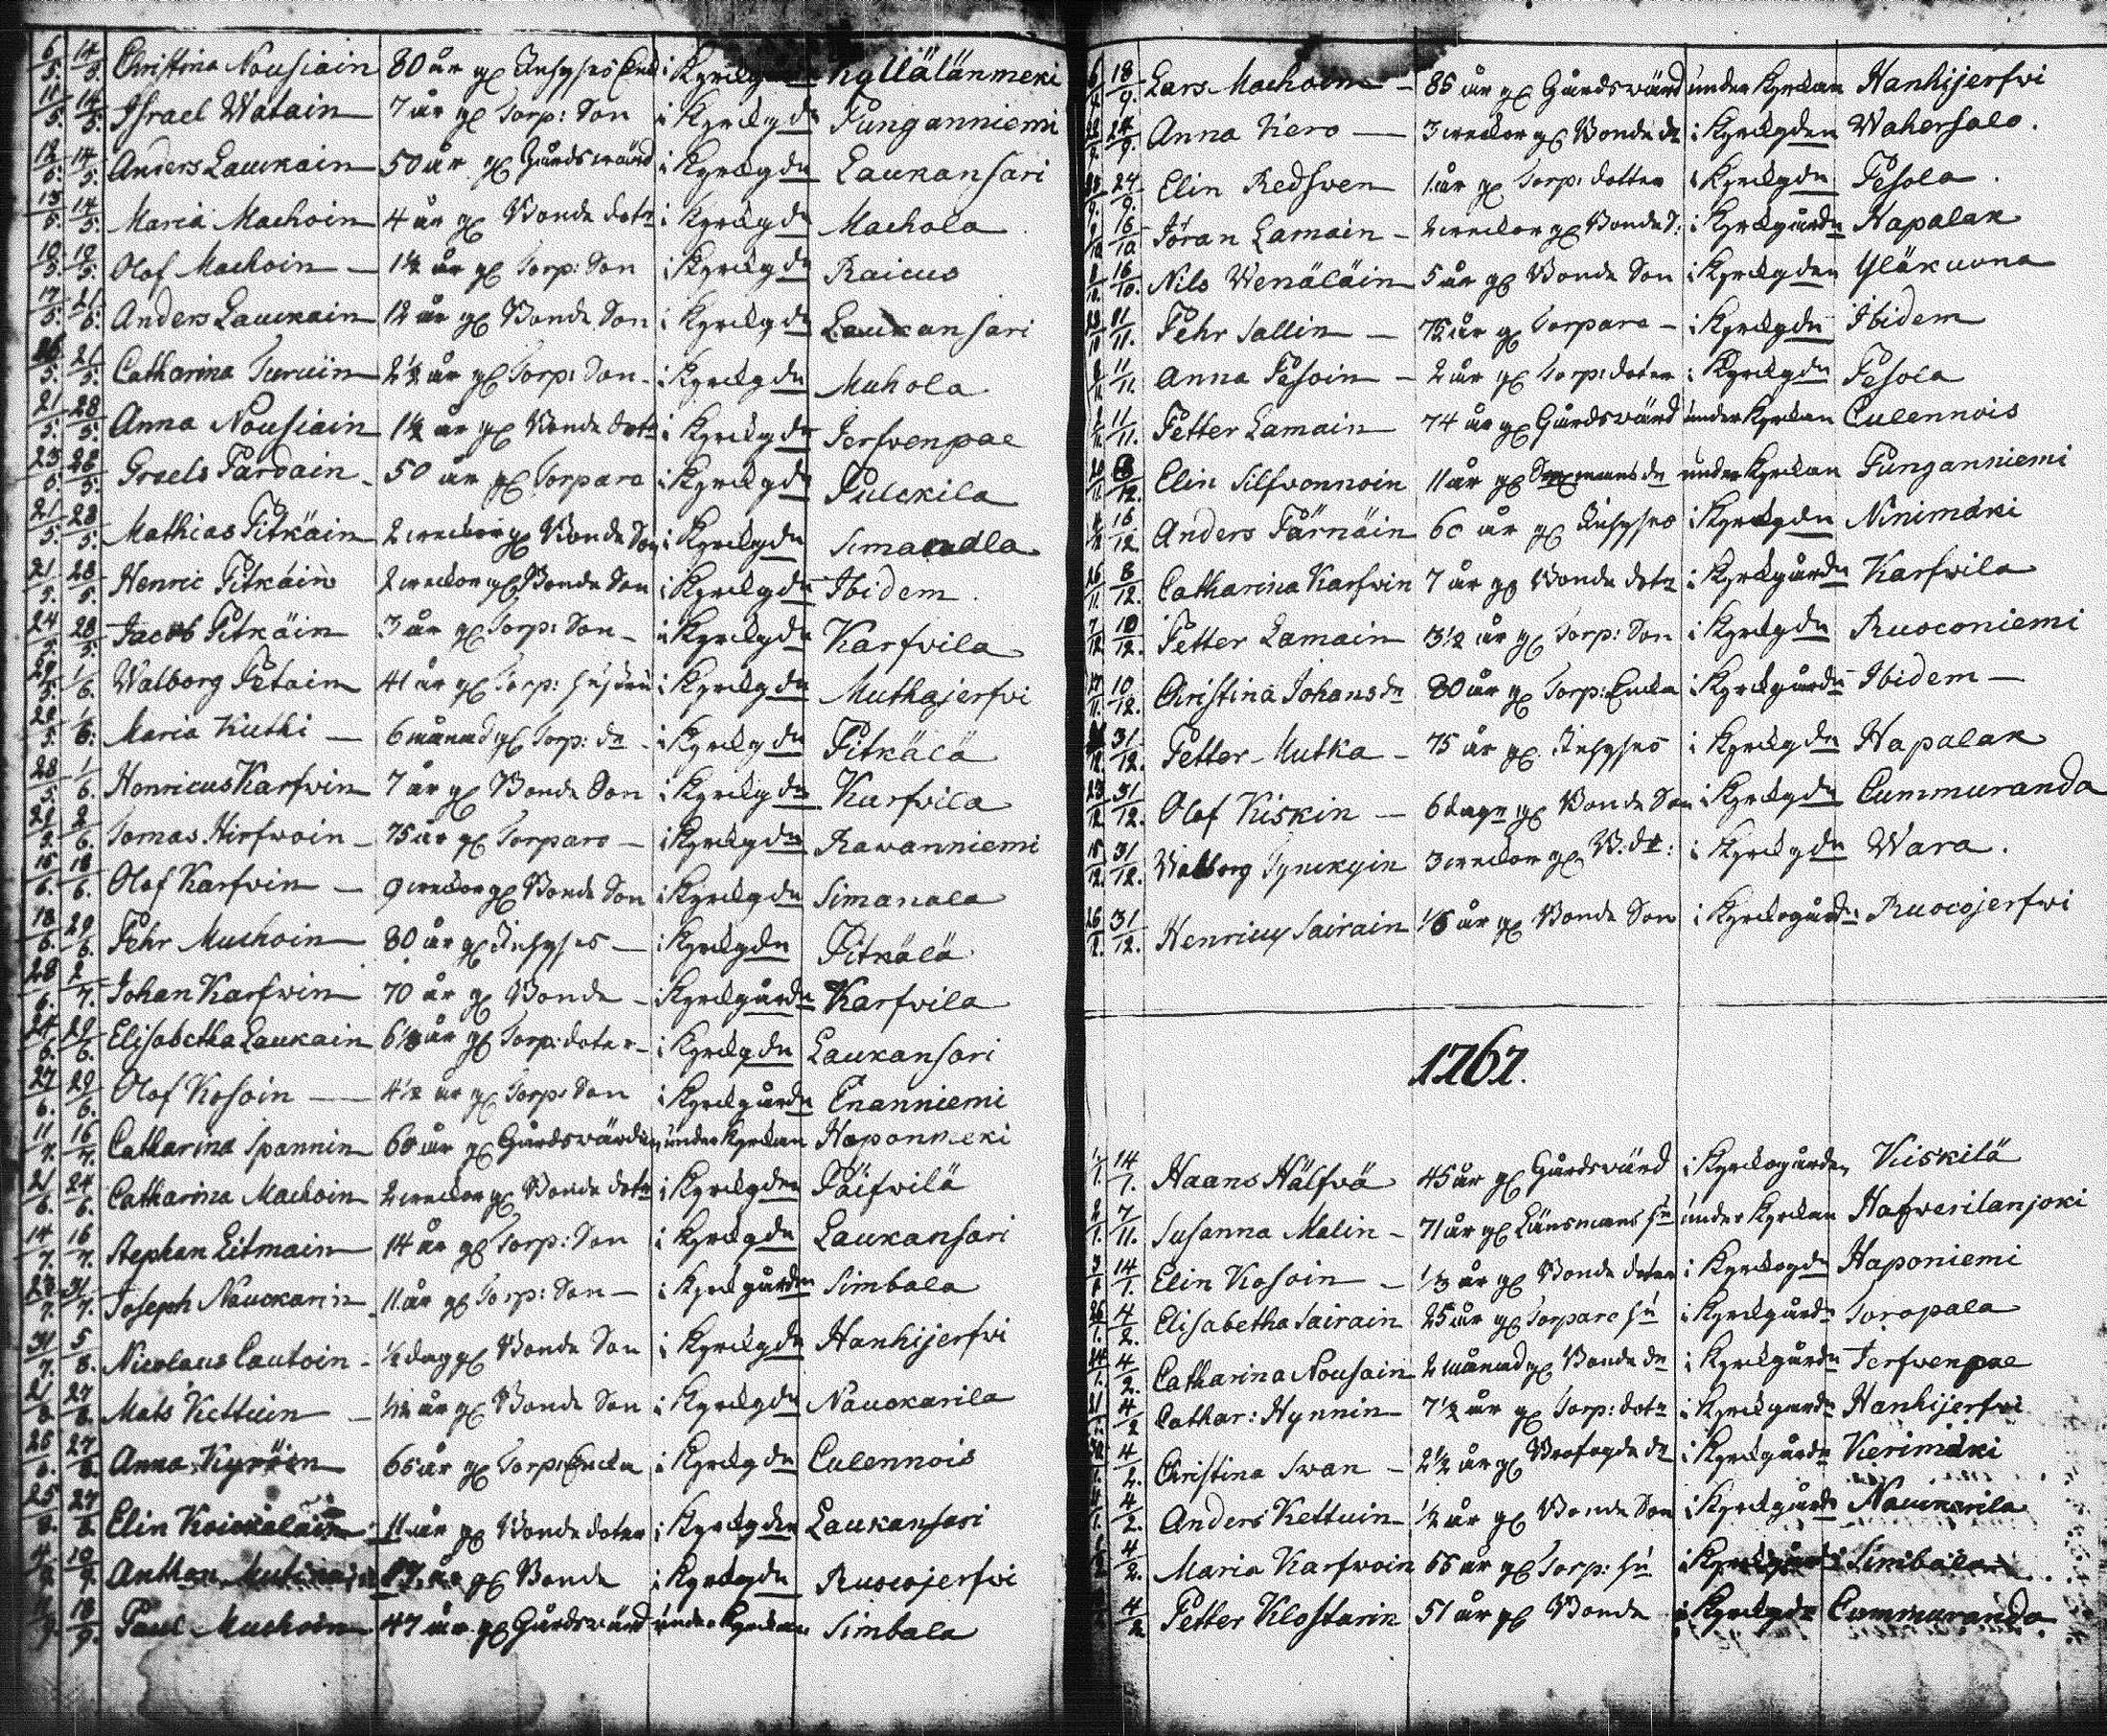 6/5. 14/5. Christina Nousiain 80 år gl Inhyses Enk i Kyrckg Kyllälänmeki
11/5. 14/5. Israel Watain 7 år gl Torp: Son i Kyrckgdn Punganniemi
12/5. 14/5. Anders Lauckain 50 år gl Gårdswärd i Kyrckgdn Laukansari
13/5. 14/5. Maria Machoin 4 år gl Bonde dotr i Kyrckgdn Machola
Olof Machoin — 1½ år gl Torp: Son i Kyrckgdn Raicus
17/5. 21/5. Anders Lauckain 12 år gl Bonde Son i Kyrckgdn Laukansari
21/5. Catharina Turuin 2½ år gl Torp: Son i Kyrckgdn Muhola
21/5. 28/5. Anna Nousiain 1½ år gl Bonde dotr i Kyrckgdn Jerfvenpae
23/5. 28/5. Groels Pardain 50 år gl Torpare i Kyrckgdn Pulckila
21/5. 28/5. Mathias Pitkäin 2 weckor gl Bonde Son i Kyrckgdn Simanala
21/5. 28/5. Henric Pitkäin 2 weckor gl Bonde Son i Kyrckgdn Ibidem.
24/5. 28/5. Jacob Pitkäin 3 år gl Torp: Son i Kyrckgdn Karfvila
1/6. Walborg Petain 41 år gl Torp: hustru i Kyrckgdn Muthajerfvi
1/6. Maria Kuthi — 6 månad gl Torp: dn i Kyrckgdn Pitkälä
28/5. 1/6. Honricus Karfvin 7 år gl Bonde Son i Kyrckgdn Karfvila
2/6. Tomas Hirfwoin 75 år gl Torpare — i Kyrckgdn Rawanniemi
15/6. 18/6. Olof Karfvin — 9 weckor gl Bonde Son i Kyrckgdn Simanala
18/6. 29/6. Pehr Muchoin 80 år gl Inhyses — i Kyrckgdn Pitkälä
28/6. 2/7. Johan Karfwin 70 år gl Bonde i Kyrckgårdn Karfvila
24/6. 29/6. Elisabetha Laukain 6½ år gl Torp: doter i Kyrckgdn Laukansari
27/6. 29/6. Olof Kosoin — 4½ år gl Torp: Son i Kyrckgårdn Enanniemi
11/7. 16/7. Catharina Spannin 60 år gl Gårdswärdin under Kyrckan Haponmeki
21/6. 24/6. Catharina Machoin 2 weckor gl Bonde dotr i Kyrckgdn Päifwilä
14/7. 16/7. Stephan Litmain 14 år gl Torp: Son i Kyrckgdn Laukansari
31/7. Joseph Nauckarin 11 år gl Torp: Son — i Kyrckgården Simbala
31/7. 5/8. Nicolaus Cautoin ½ dag gl Bonde Son i Kyrckgdn Hanhijerfwi
21/8. 27/8. Mats Kettuin — 1½ år gl Bonde Son i Kyrckgdn Nauckarila
27/8. Anna Kyröin 65 år gl Torp: Encka i Kyrckgdn Culennois
25/8. 27/8. Elin Koickalain 11 år gl Bonde doter i Kyrckgdn Laukansari
10/9. Anthon år gl Bonde i Kyrckgdn Ruocojerfwi
18/9. Paul Muchoin 47 år gl Gårdswärd under Kyrckan Simbala
18/9. Lars Machoin — 85 år gl Gårdswärd under Kyrckan Hanhijerfwi
24/9. Anna Kero — 3 weckor gl Bonde dr i Kyrckgden Wahersalo.
24/9. Elin Redsven 1 år gl Torp: dotter i Kyrckgdn Pesola.
16/10 Jöran Lamain — 2 weckor gl Bonde S: i Kyrckgårdn Hapalax
16/10. Nils Wenäläin 5 år gl Bonde Son i Kyrckgden Yläkuona
11/11. Pehr Sallin — 75 år gl Torpare — i Kyrckgdn Ibidem
11/11. Anna Pesoin — 2 år gl Torp: doter i Kyrckgdn Pesola
11/11. Petter Lamain 74 år gl Gårdswärd under Kyrckan Culennois
8/12. Elin Silfvonnoin 11 år gl under Kyrckan Punganniemi
16/12 Anders Pärnäin 60 år gl Inhyses i Kyrckgdn Ninimäki
8/12. Catharina Karfwin 7 år gl Bonde dotr i Kyrckgårdn Karfwila
7/12 10/12. Petter Lamain 3½ år gl Torp: Son i Kyrckgdn Ruoconiemi
10/12. Christina Johansdr 80 år gl Torp: Encka i Kyrckgårdn Ibidem —
31/12. Petter Mutka — 75 år gl Inhyses i Kyrckgdn Hapalax
31/12. Olof Kiskin — 6 dagr gl Bonde Son i Kyrckgdn Cummuranda
15/12. 31/12. Walborg Tynckyin 3 weckor gl B. dr: i Kyrckgdn Wara.
31/12. Henricus Sairain 1/6 år gl Bonde Son i Kyrckogårdn: Ruocojerfwi
1767.
14/1. Haans Hälfvä 45 år gl Gårdswärd i Kyrckogården Kiskilä
7/11. Susanna Malin — 71 år gl Länsmans hu under Kyrckan Hafwerilanjoki
14/1. Elin Kosoin — 1/3 år gl Bonde doter i Kyrckogdn Haponiemi
4/2. Elisabetha Sairain 25 år gl Torpare hu i Kyrckgårdn Soropala
4/2. Catharina Nousain 2 månad gl Bonde dr i Kyrckgårdn Jerfwenpae
4/2 Cathar: Hynnin 7½ år gl Torp: dotr i Kyrckgårdn Hanhijerfwi
4/2. Christina Swan — 2½ år gl Brofogde dr i Kyrckgårdn Kerimäki
4/2. Anders Kettuin — ½ år gl Bonde Son i Kyrckgårdn Nauckarila
4/2. Maria Karfwoin 55 år gl Torp: hu i Kyrckgård Simbala
4/2. Petter Klostarin 51 år gl Bonde i Kyrckgdn Cummuranda